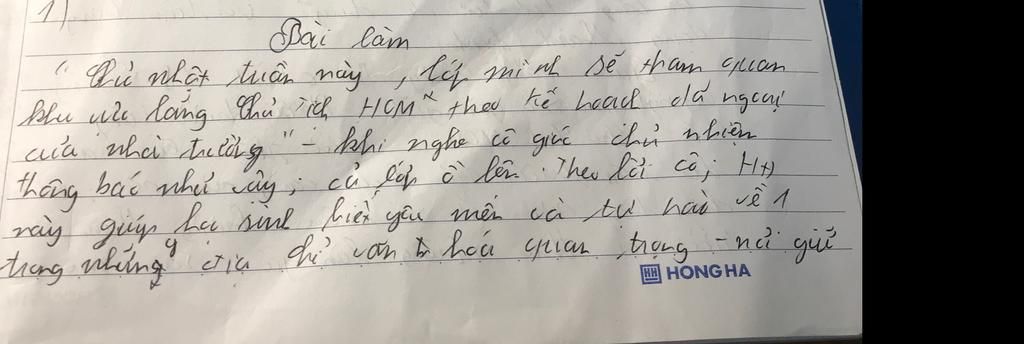 1)
Bài làm
" Chủ nhật tuần này, lớp mình sẽ tham quan
khu vực lăng Chủ tịch HCM " theo kế hoạch dã ngoại
của nhà trường " - khi nghe cô giáo chủ nhiệm
thông báo như vậy, cả lớp ồ lên. Theo lời cô, HĐ
này giúp học sinh biết yêu mến và tự hào về 1
trong những địa chỉ văn hoá quan trọng - nơi giữ
HONG HA